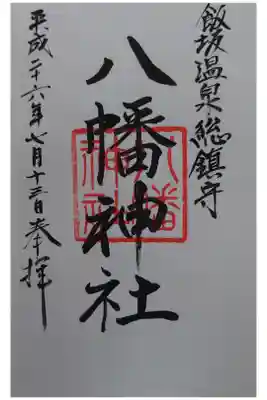 飯坂温泉総鎮守
八幡神社
平成二十六年七月十三日奉拝
八幡神社